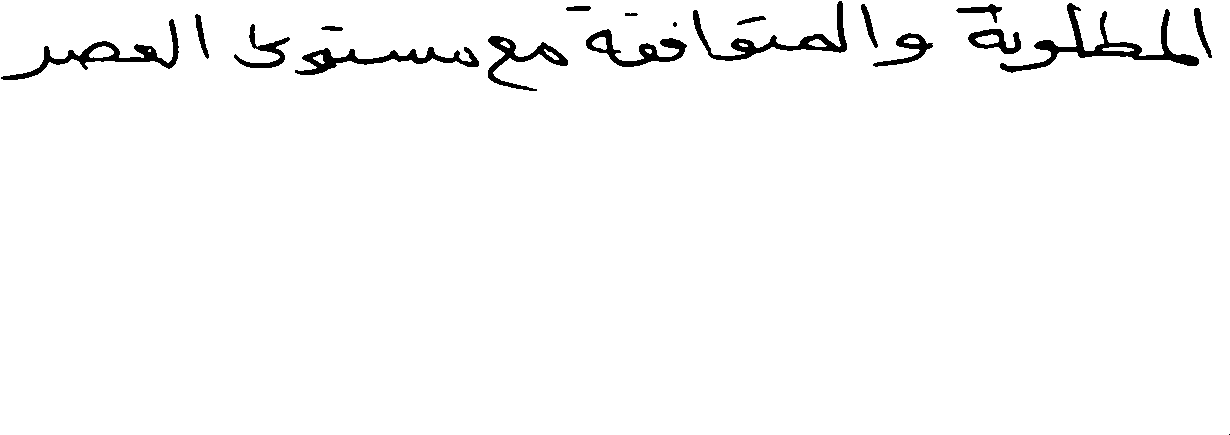 المطلوبة والمتوافقة مع مستوى العصر